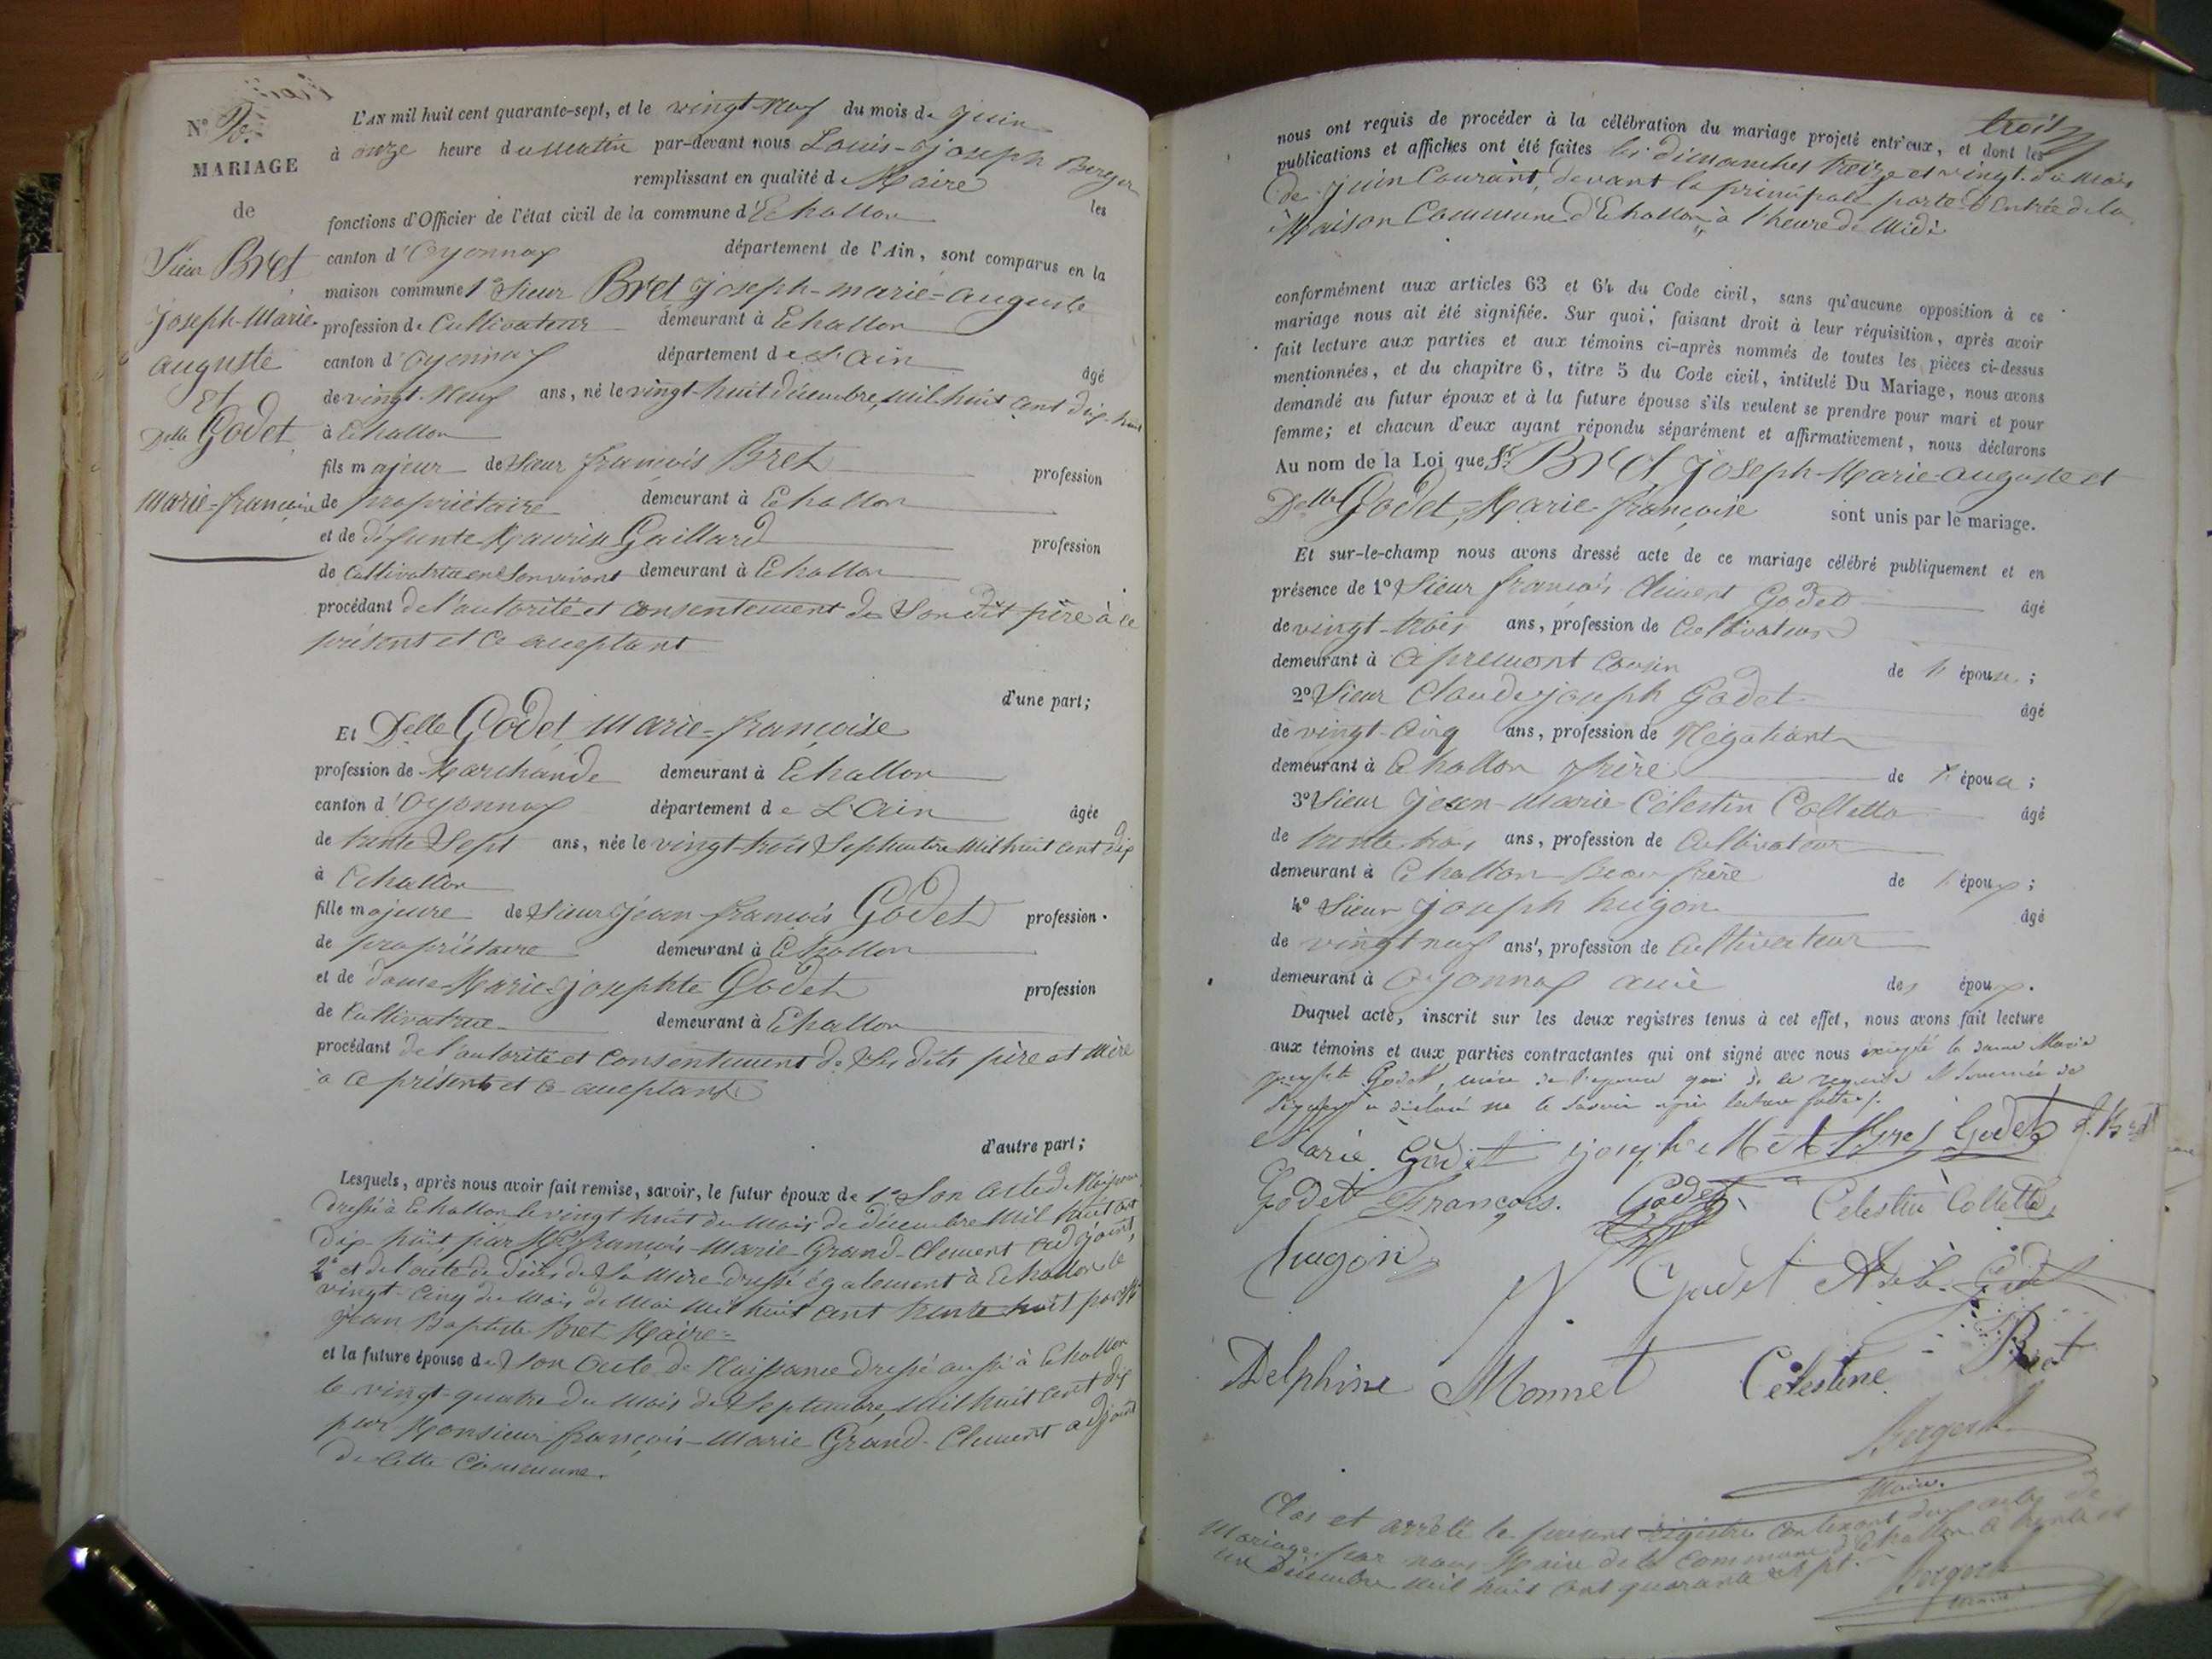 N°
MARIAGE
de
Sieur Bret
Joseph-Marie-
auguste
Et
Delle Godet
Marie-françoise
L'AN mil huit cent quarante-sept, et le vingt-neuf du mois de Juin
à onze heure du Matin par-devant nous Louis-Joseph Berger
remplissant en qualité de Maire les
fonctions d'Officier de l'état civil de la commune d'Echallon
canton d'Oyonnax département de l'Ain, sont comparus en la
maison commune 1° Sieur Bret Joseph-marie-auguste
profession de Cultivateur demeurant à Echallon
canton d'Oyonnax département de L'ain âgé
de vingt-Neuf ans, né le vingt-huit décembre, mil huit cent dix-huit
à Echallon
fils majeur de Sieur françois Bret profession
de propriétaire demeurant à Echallon
et de défunte Maurise Gaillard profession
de Cultivatrice en Son vivant demeurant à Echallon
procédant de l'autorité et consentement de Son dit père à ce
présent et ce acceptant
d'une part;
Et Delle Godet, Marie-françoise
profession de Marchande demeurant à Echallon
canton d'Oyonnax département de L'Ain âgée
de trente Sept ans, née le vingt-trois Septembre Mil huit cent dix
à Echallon
fille majeure de Sieur Jean-françois Godet profession
de propriétaire demeurant à Echallon
et de dame Marie-Josephte Godet profession
de Cultivatrice demeurant à Echallon
procédant de l'autorité et Consentement de Ses dits père et Mère
à ce présents et ce acceptants
d'autre part;
Lesquels, après nous avoir fait remise, savoir, le futur époux de 1° Son Acte de Naissance
dressé à Echallon le vingt huit du Mois de décembre Mil huit cent
dix-huit, par Mr. françois-Marie-Grand-Clement adjoint,
2° et de l'acte de décès de Sa Mère dressé également à Echallon le
vingt-cinq du Mois de Mai Mil huit cent trente huit par Mr
Jean Baptiste Bret Maire=
et la future épouse de Son Acte de Naissance dressé aussi à Echallon
le vingt-quatre du Mois de Septembre, Mil huit cent dix
par Monsieur françois-Marie Grand-Clement adjoint
de cette Commune.
nous ont requis de procéder à la célébration du mariage projeté entr'eux, et dont les
trois
publications et affiches ont été faites les dimanches treize et vingt du Mois
de Juin Courant, devant la principale porte d'Entrée de la
Maison Commune d'Echallon, à l'heure de Midi
conformément aux articles 63 et 64 du Code civil, sans qu'aucune opposition à ce
mariage nous ait été signifiée. Sur quoi, faisant droit à leur réquisition, après avoir
fait lecture aux parties et aux témoins ci-après nommés de toutes les pièces ci-dessus
mentionnées, et du chapitre 6, titre 5 du Code civil, intitulé Du Mariage, nous avons
demandé au futur époux et à la future épouse s'ils veulent se prendre pour mari et pour
femme; et chacun d'eux ayant répondu séparément et affirmativement, nous déclarons
Au nom de la Loi que Sr. Bret, Joseph-Marie-auguste et
Delle Godet, Marie-françoise sont unis par le mariage.
Et sur-le-champ nous avons dressé acte de ce mariage célébré publiquement et en
présence de 1° Sieur françois Clément Godet âgé
de vingt-trois ans, profession de Cultivateur
demeurant à Apremont Cousin de l'épouse;
2° Sieur Claude joseph Godet âgé
de vingt-Cinq ans, profession de Négotiant
demeurant à Echallon frère de l'épouse;
3° Sieur Jean-Marie Célestin Collette âgé
de trente-trois ans, profession de Cultivateur
demeurant à Echallon Beau frère de l'époux;
4° Sieur Joseph hugon âgé
de vingt neuf ans, profession de Cultivateur
demeurant à Oyonnax ami des époux.
Duquel acte, inscrit sur les deux registres tenus à cet effet, nous avons fait lecture
aux témoins et aux parties contractantes qui ont signé avec nous excepté la dame Marie
Josephte Godet, mère de l'épouse qui de ce requise et sommée de
signer a déclaré ne le savoir après lecture faite.
Marie Godet joseph M Bret Godet f. Bret
Godet François. Godet Celestin Collette
hugon Godet Godet
Delphine Monnet Celestine Bret
Berger
Maire.
Clos et arrêté le présent registre contenant dix actes de
Mariage, par nous Maire de la Commune d'Echallon le trente et
un Décembre Mil huit cent quarante sept.
Berger
Maire